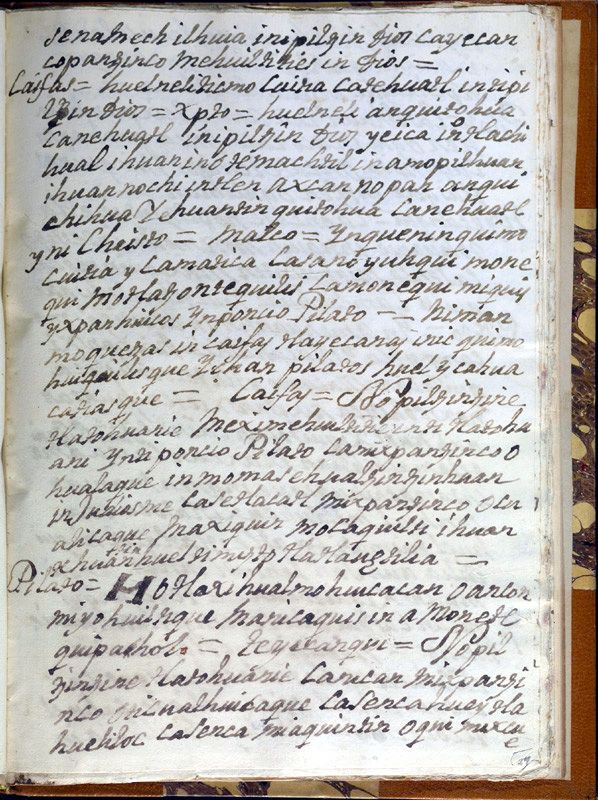 senamech ilhuia inipilzin Dios cayecan
copantzinco mehuilities in Dios =
Caifas = huelnelitismo Cuixa catehuatl intipi
ltzin Dios = Xpto = huelneli anquitohua
Canehuatl inipiltzin Dios yeica intlachi
hual ihuan inotemachtil in amopilhuan
ihuan nochi intlen axcan nopan anqui
chihua Yehuantzin quitohua Canehuatl
yni Christo = Malco = Ynquenin quimo
cuitia y Camatica Casano yuhqui mone
qui Motlatontequilis Camonequi miquis
yxpantzinco Ynponcio Pilato = Niman
moquezas in Caifas tlayecanas inic quimo
huiquilisque Ychan pilatos huel ycahua
catiasque = Caifas = Nopiltzintzine
tlatohuanie Meximehuiltitie inti tlatohu
ani ynti poncio Pilato Camixpantzinco o
hualaque in momasehualtzintzinhuan
in Judiosme Casetlacatl mixpantzinco oca
axicaque Maxiquin Mocaquilti ihuan
xhuan huel ximotlatlanilia =
Pilato = Motlaxihualmohuicacan oancon
miyohuiltique Manicaquis in a Monete
quipachol = Teyecanqui = Nopil
tzintzine tlatohuanie Camcan mixpantzi
nco oticualhuicaque Casenca huey tla
hueliloc Casenca miaquintin oqui mixcue